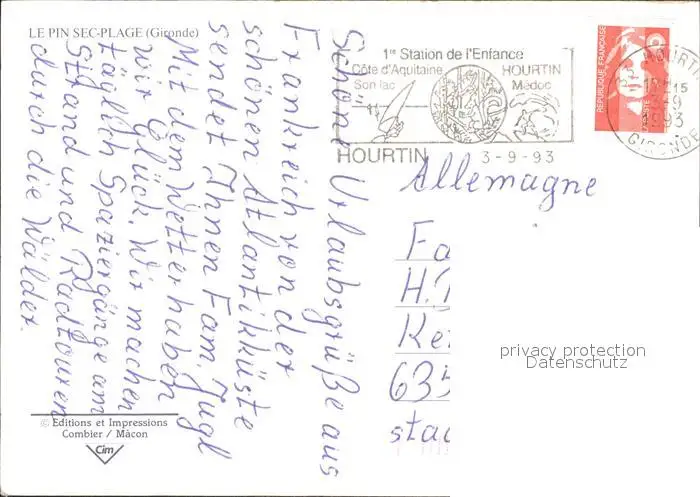 LE PIN SEC-PLAGE (Gironde)
Schöne Urlaubsgrüße aus
Frankreich von der
schönen Atlantikküste
sendet Ihnen Fam. Jugl
Mit dem Wetter haben
wir Glück. Wir machen
täglich Spaziergänge am
Strand und Radtouren
durch die Wälder.
© Editions et Impressions
Combier / Mâcon
Cim
1re Station de l'Enfance
Côte d'Aquitaine HOURTIN
Son lac Médoc
HOURTIN 3-9-93
REPUBLIQUE FRANÇAISE
HOURTIN
15
1993
GIRONDE
Allemagne
Fa
H.
Ke
635
stad
privacy protection
Datenschutz